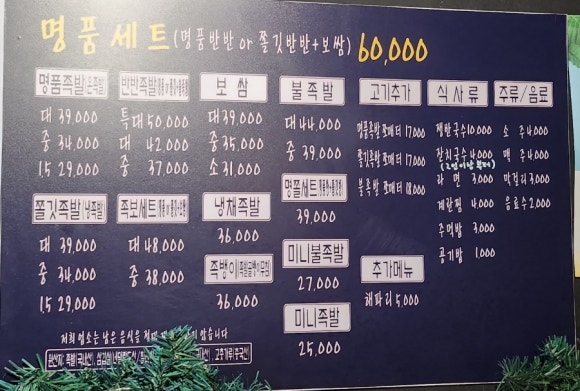 명품세트(명품반반 or 쫄깃반반+보쌈) 60,000
명품족발(온족발)
대 39,000
중 34,000
1.5 29,000
반반족발
특대 50,000
대 42,000
중 37,000
보쌈
대 39,000
중 35,000
소 31,000
불족발
대 44,000
중 39,000
명쫄세트
39,000
미니불족발
27,000
미니족발
25,000
고기추가
명품족발 로매터 17,000
쫄깃족발 로매터 17,000
불족발 로매터 18,000
식사류
쟁반국수 10,000
잔치국수 4,000
라면 3,000
계란찜 4,000
주먹밥 3,000
공기밥 1,000
주류/음료
소주 4,000
맥주 4,000
막걸리 3,000
음료수 2,000
쫄깃족발(냉족발)
대 39,000
중 34,000
1.5 29,000
족보세트
대 48,000
중 38,000
냉채족발
36,000
족뱅이(족발골뱅이무침)
36,000
추가메뉴
해파리 5,000
저희 업소는 남은 음식을 않습니다
원산지: 족발(국내산), 고춧가루(중국산)